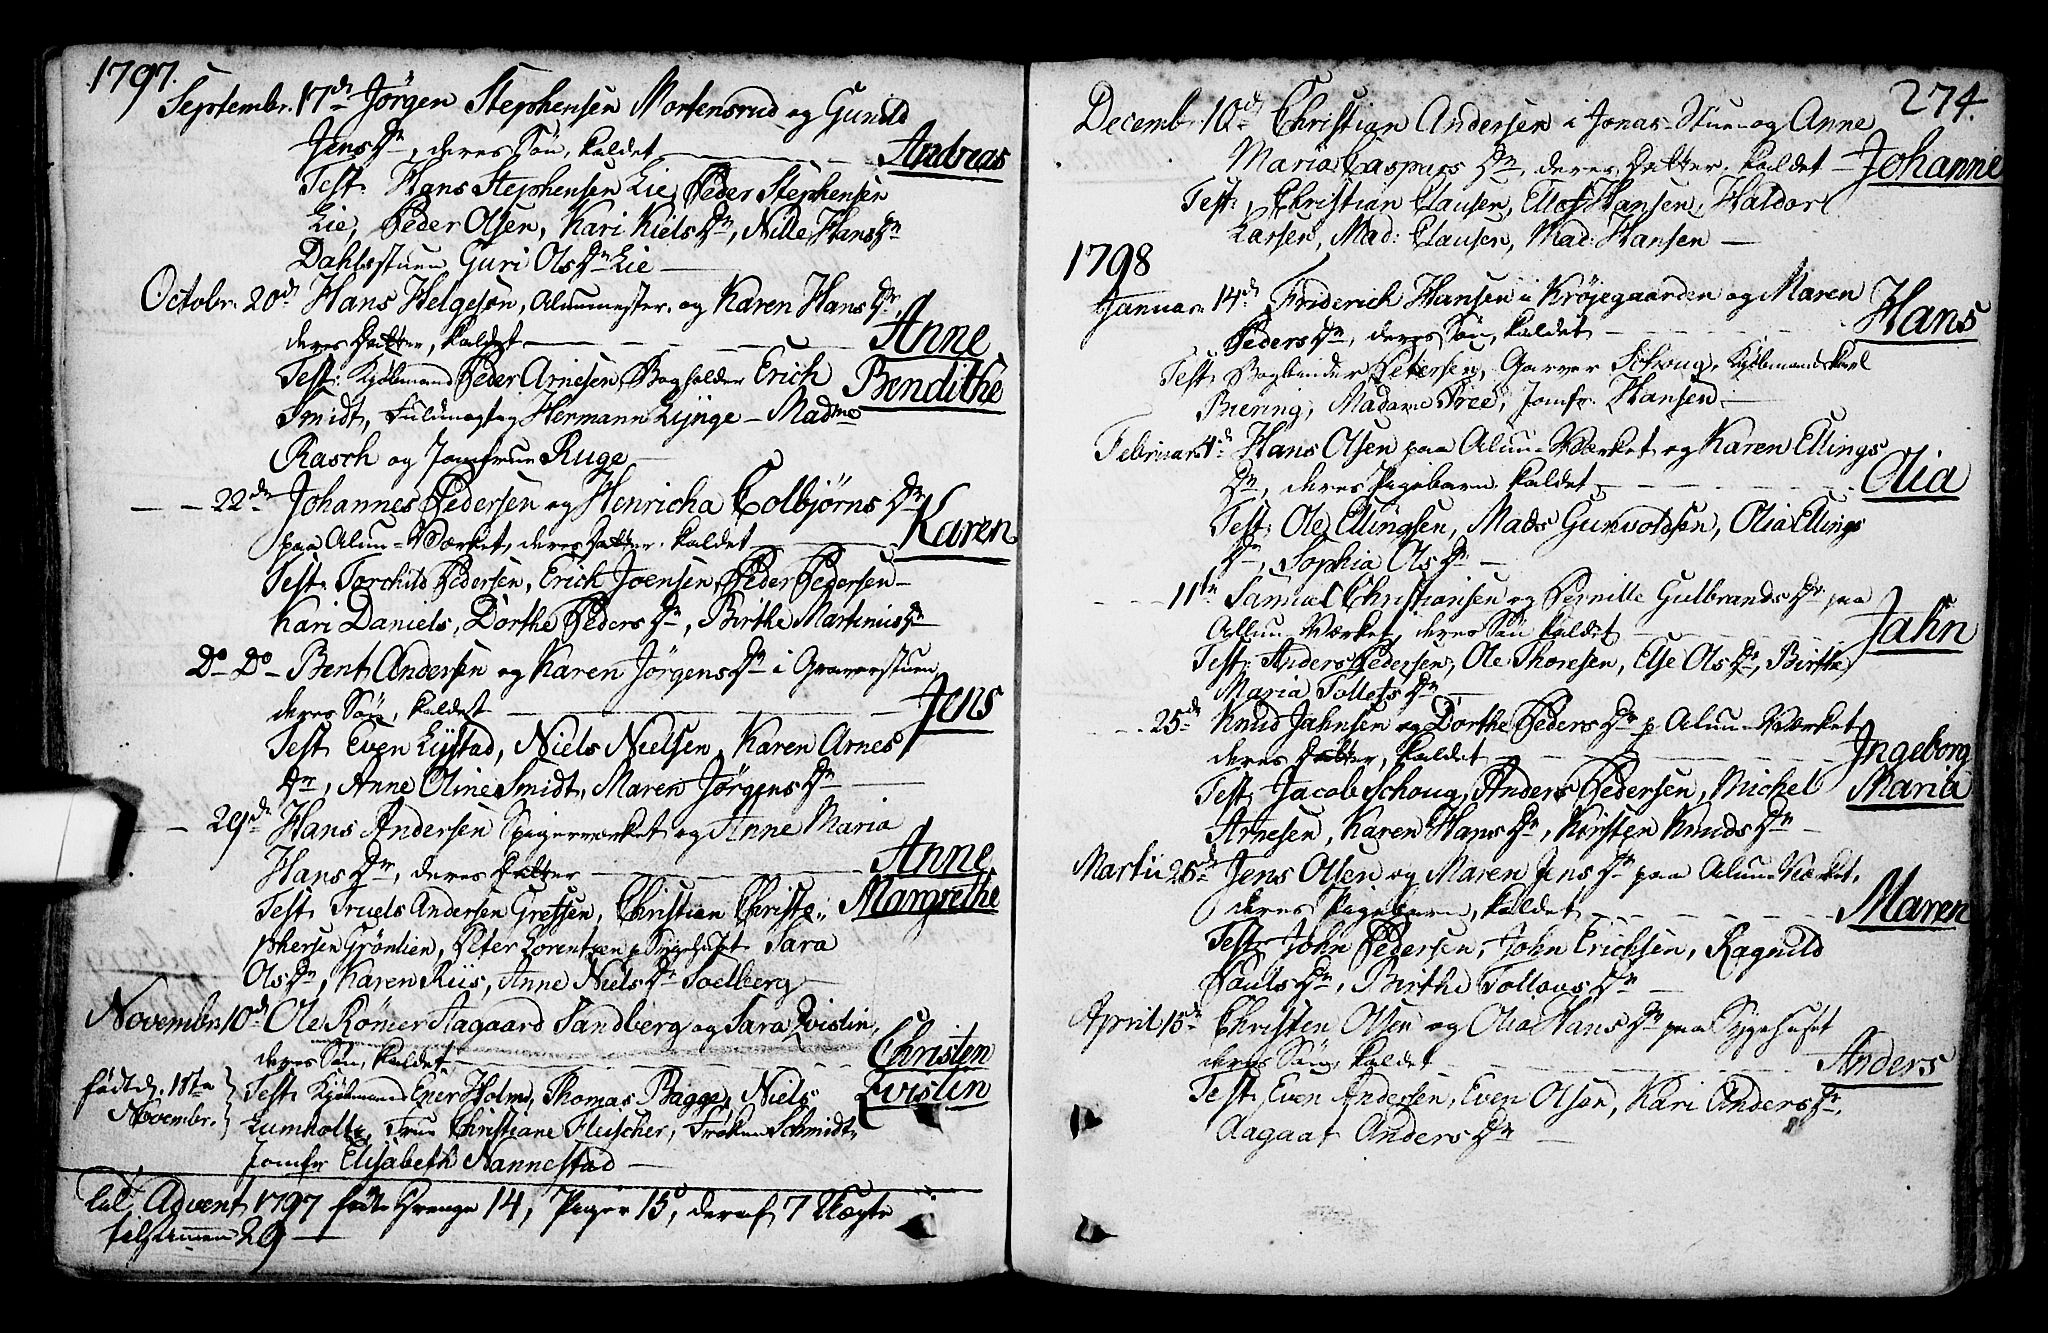 1797.
Septembr. 17de Jörgen Stephensen Mortensrud og Gunild
JensDr, deres Sön, kaldet — Andreas
Test: Hans Stephensen Lie, Peder Stephensen
Lie, Peder Olsen, Kari KielsDr, Nille HansDr
Dahlsstuen Guri OlsDr Lie —
Octobr. 20de Hans Helgesön, Alunmester, og Karen HansDr,
deres Datter, kaldet — Anne
Test: Kjöbmand Peder Arnesen, Bogholder Erich Bendithe
Smidt, Fuldmægtig Hermann Lynge — Madme
Rasch og Jomfrue Ruge —
— — 22de Johannes Pedersen og Henricha ColbjörnsDr
paa Alun-Værket, deres Datter, kaldet — Karen
Test: Torchild Pedersen, Erich Joensen, Peder Pedersen —
Kari Daniels, Dorthe PedersDr, Birthe MartinusDr
Do Do — Bent Andersen og Karen JörgensDr i Graverstuen
deres Sön, kaldet — Jens
Test: Even Lystad, Niels Nielsen, Karen Arnes
Dr, Anne Oline Smidt, Maren JörgensDr —
— 29de Hans Andersen Spigerverket og Anne Maria
HansDr, deres Datter — Anne
Test: Truels Andersen Gretsen, Christian Christo- Margrethe
phersen Grönlien, Peter Lorentzen p Sygehuset Sara
OlsDr, Karen Riis, Anne NielsDr Soelberg —
Novembr. 10de Ole Römer Aagaard Sandberg og Sara Qvistin,
deres Sön, kaldet — Christen
födt d. 18te Test: Kjöbmand Ener Holm, Thomas Bagge, Niels Qvistin
Novembr. Lumholtz, Frue Christiane Fleischer, Fröken Schmidt,
Jomfr Elisabeth Nannestad —
til Advent 1797 födte Drenge 14, Piger 15, deraf 7 Uægte
tilsammen 29 —
274.
Decemb. 10de Christian Andersen i Jonas-Stuen og Anne
Maria CaspersDr, deres Datter, kaldet — Johanne
Test: Christian Clausen, Ellof Hansen, Haldor
Larsen, Mad: Clausen, Mad: Hansen —
1798
Januar. 14de Friderich Hansen i Kröjegaarden og Maren
PedersDr, deres Sön, kaldet — Hans
Test: Bogbinder Petersen, Garver Schoug, Kjöbmandskarl
Biering, Madame Pree, Jomfr. Hansen —
Februar. 4de Hans Olsen paa Alun-Værket, og Karen Ellings
Dr, deres Pigebarn kaldet — Olia
Test: Ole Ellingsen, Mads Gunvoldsen, Olia Ellings
Dr, Sophia OlsDr —
— 11te Samuel Christiansen og Pernille GulbrandsDr paa
Allun-Værket, deres Sön kaldet — Jahn
Test: Anders Pedersen, Ole Thoresen, Else OlsDr, Birthe
Maria TollefsDr —
— 25de Knud Jahnsen og Dorthe PedersDr p Alun-Værket
deres Datter, kaldet — Ingeborg
Test: Jacob Schoug, Anders Pedersen, Michel Maria
Arnesen, Karen HansDr, Kirsten KnudsDr —
Martii 25de Jens Olsen og Maren JensDr paa Alun-Værket,
deres Pigebarn, kaldet — Maren
Test: John Pedersen, John Erichsen, Ragnild
PaulsDr, Birthe TollovsDr —
April 15de Christen Olsen og Olia HansDr paa Sygehuset
deres Sön, kaldet — Anders
Test: Even Andersen, Even Olsen, Kari AndersDr,
Aagaat AndersDr —